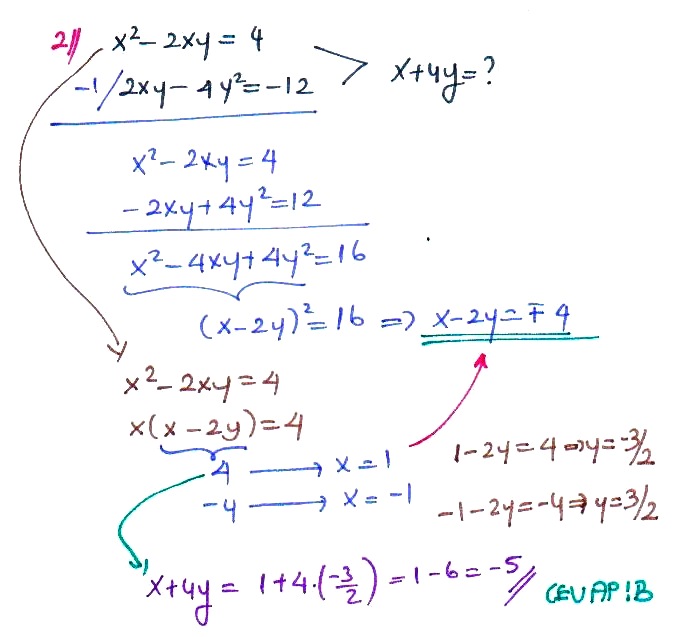 2// x² - 2xy = 4
-1/ 2xy - 4y² = -12
x+4y = ?
x² - 2xy = 4
-2xy + 4y² = 12
x² - 4xy + 4y² = 16
(x-2y)² = 16 => x-2y = ∓ 4
x² - 2xy = 4
x(x-2y) = 4
4 → x = 1
-4 → x = -1
1-2y = 4 => y = -3/2
-1-2y = -4 => y = 3/2
x+4y = 1+4·(-3/2) = 1-6 = -5//
CEVAP:B